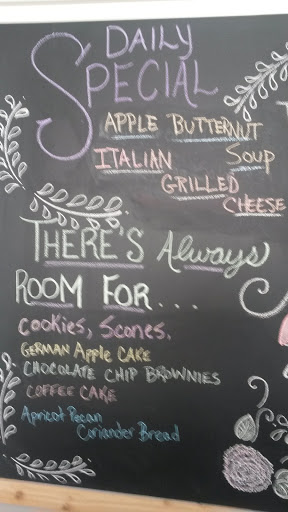 DAILY
SPECIAL
APPLE BUTTERNUT
ITALIAN Soup
GRILLED
CHEESE
THERE'S Always
ROOM FOR...
Cookies, Scones.
GERMAN Apple CAKE
CHOCOLATE CHIP BROWNIES
COFFEE CAKE
Apricot Pecan
Coriander Bread